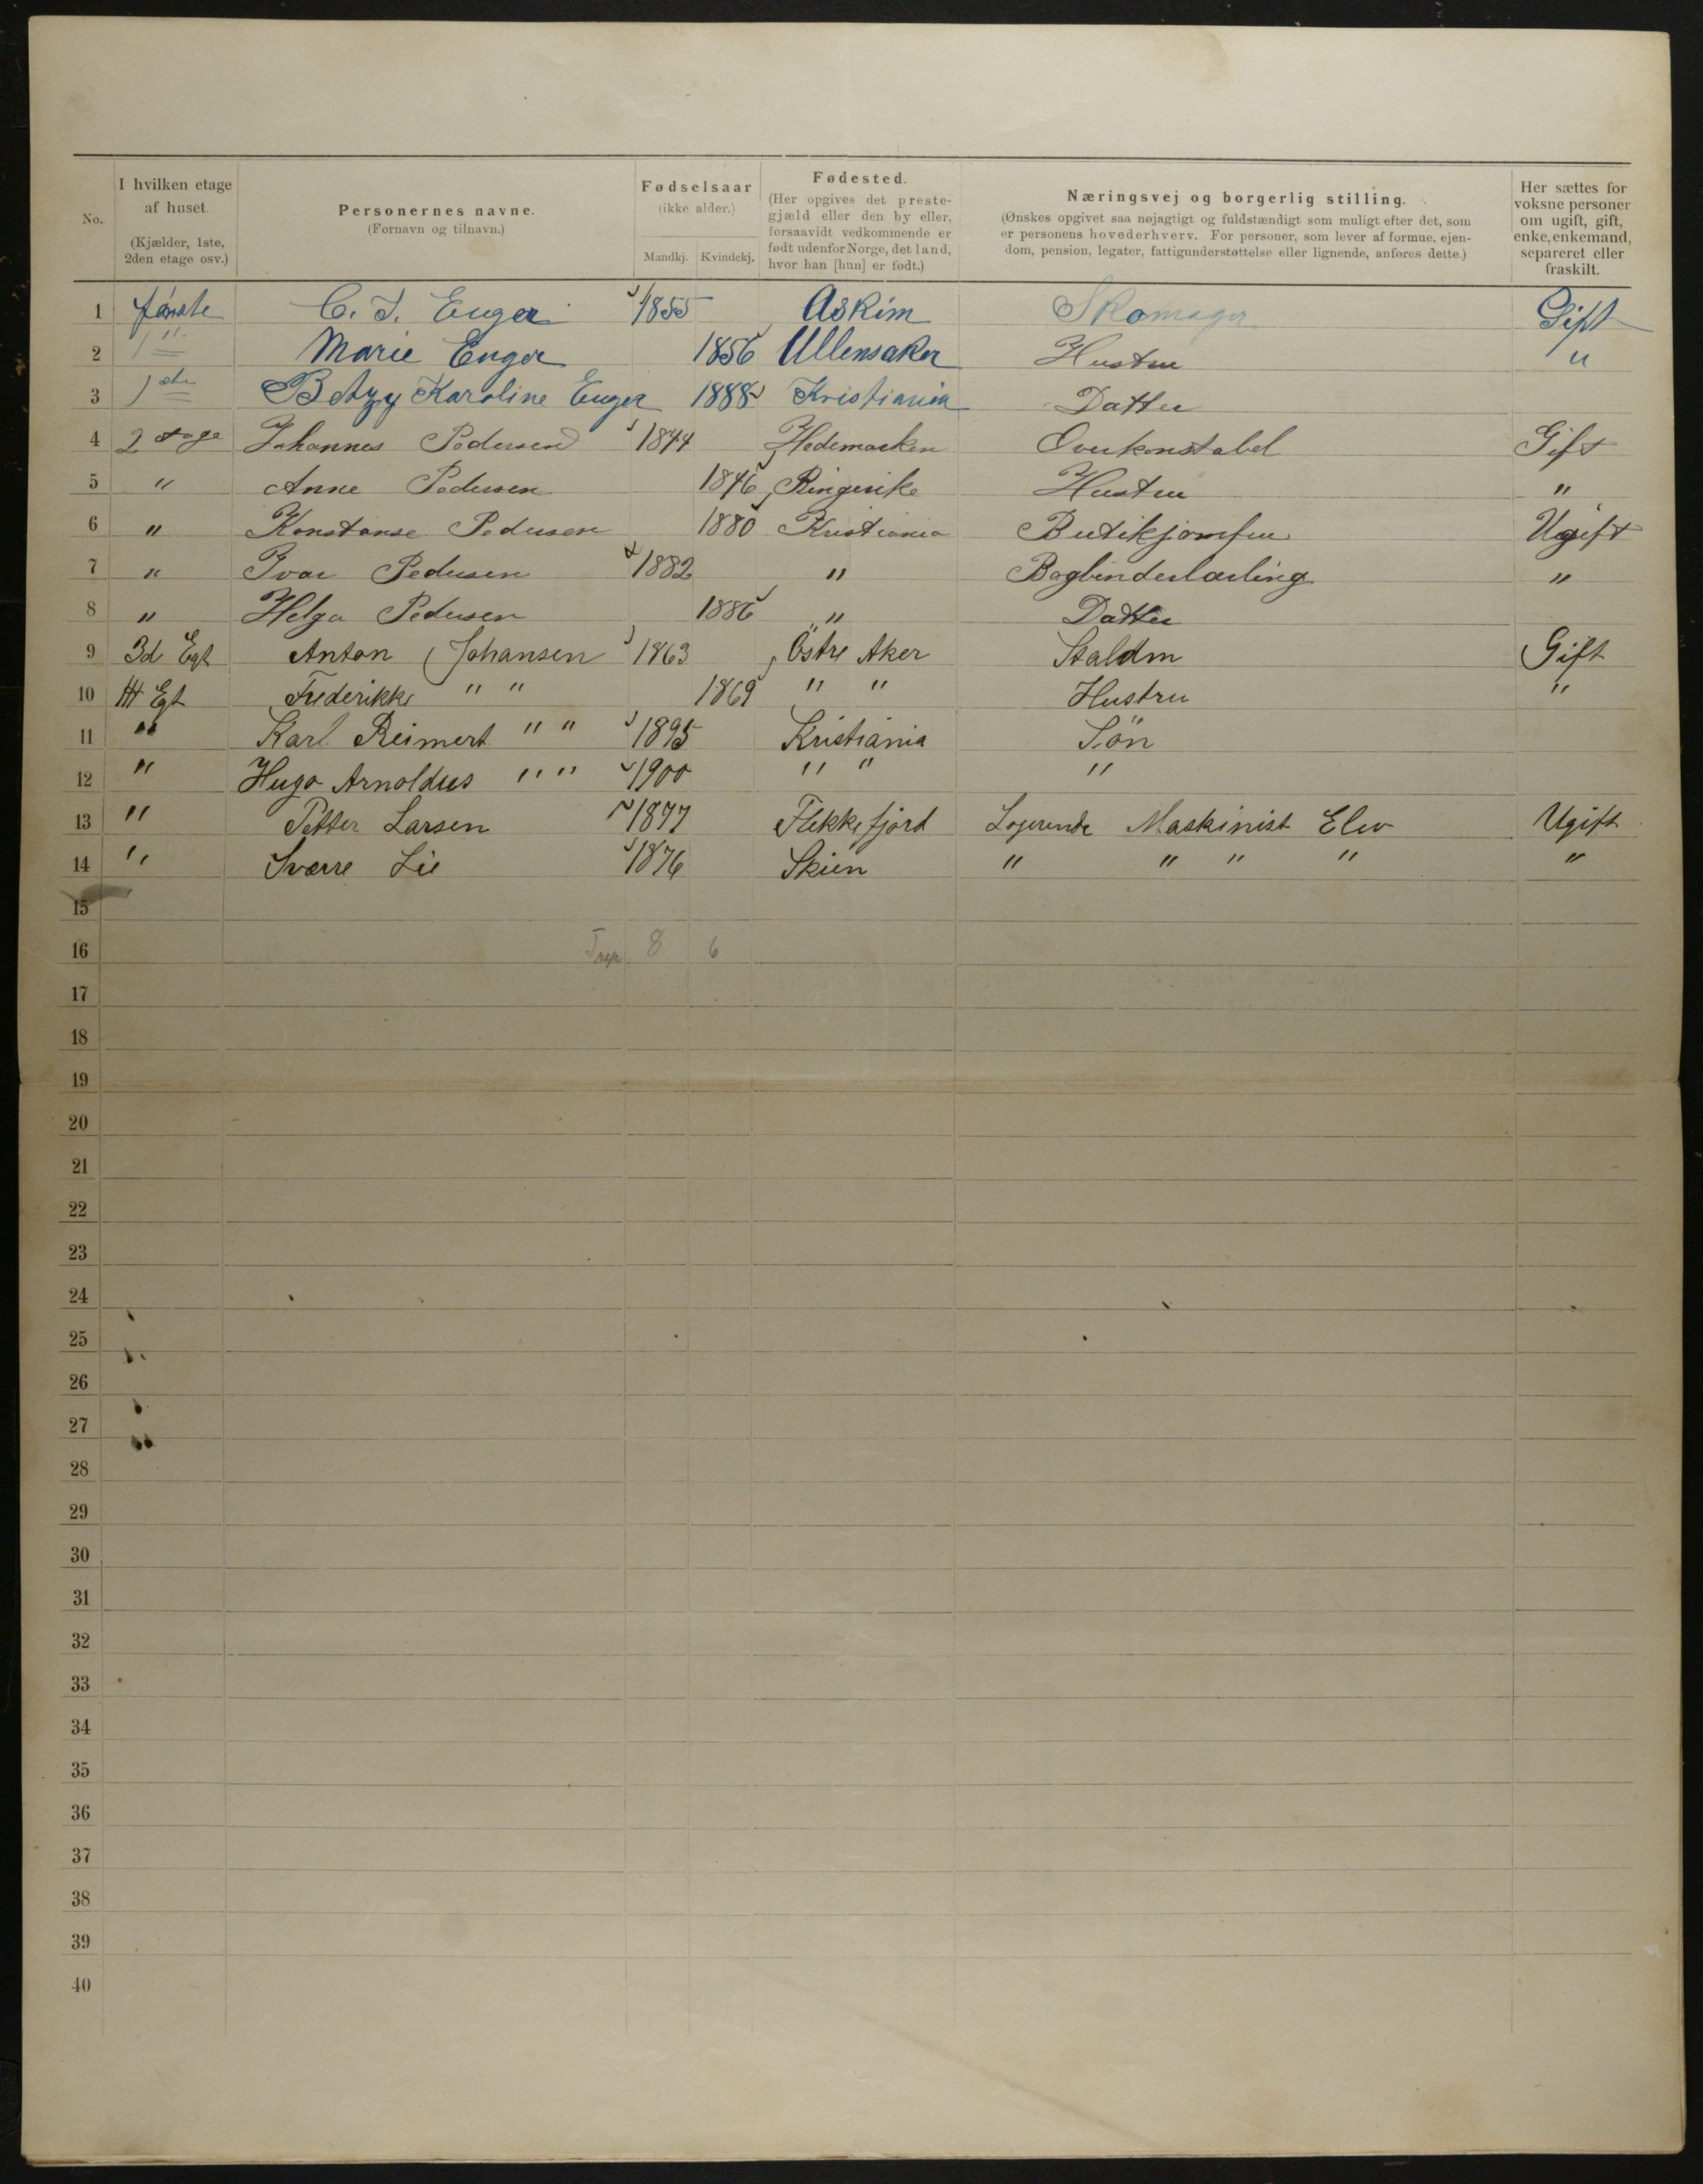 No.
I hvilken etage af huset. (Kjælder, 1ste, 2den etage osv.)
Personernes navne. (Fornavn og tilnavn.)
Fødselsaar (ikke alder.) Mandkj. Kvindekj.
Fødested. (Her opgives det prestegjæld eller den by eller, forsaavidt vedkommende er født udenfor Norge, det land, hvor han [hun] er født.)
Næringsvej og borgerlig stilling. (Ønskes opgivet saa nøjagtigt og fuldstændigt som muligt efter det, som er personens hovederhverv. For personer, som lever af formue, ejendom, pension, legater, fattigunderstøttelse eller lignende, anføres dette.)
Her sættes for voksne personer om ugift, gift, enke, enkemand, separeret eller fraskilt.
1 første C. J. Enger 1855 Askim Skomager Gift
2 1 " Marie Enger 1856 Ullensaker Hustru "
3 1ste Betzy Karoline Enger 1888 Kristiania Datter
4 2 etage Johannes Pedersen 1844 Hedemarken Overkonstabel Gift
5 " Anne Pedersen 1846 Ringerike Hustru "
6 " Konstanse Pedersen 1880 Kristiania Butikjomfru Ugift
7 " Ivar Pedersen 1882 " Bogbinderlærling "
8 " Helga Pedersen 1886 " Datter
9 3d Egt Anton Johansen 1863 Östre Aker Staldm Gift
10 Egt Frederikke " " 1869 " " Hustru "
11 " Karl Reimert " " 1895 Kristiania Sön
12 " Hugo Arnoldus " " 1900 " " "
13 " Petter Larsen 1877 Flekkefjord Logerende Maskinist Elev Ugift
14 " Sværre Lie 1876 Skien " " " " "
15
16 8 6
17
18
19
20
21
22
23
24
25
26
27
28
29
30
31
32
33
34
35
36
37
38
39
40